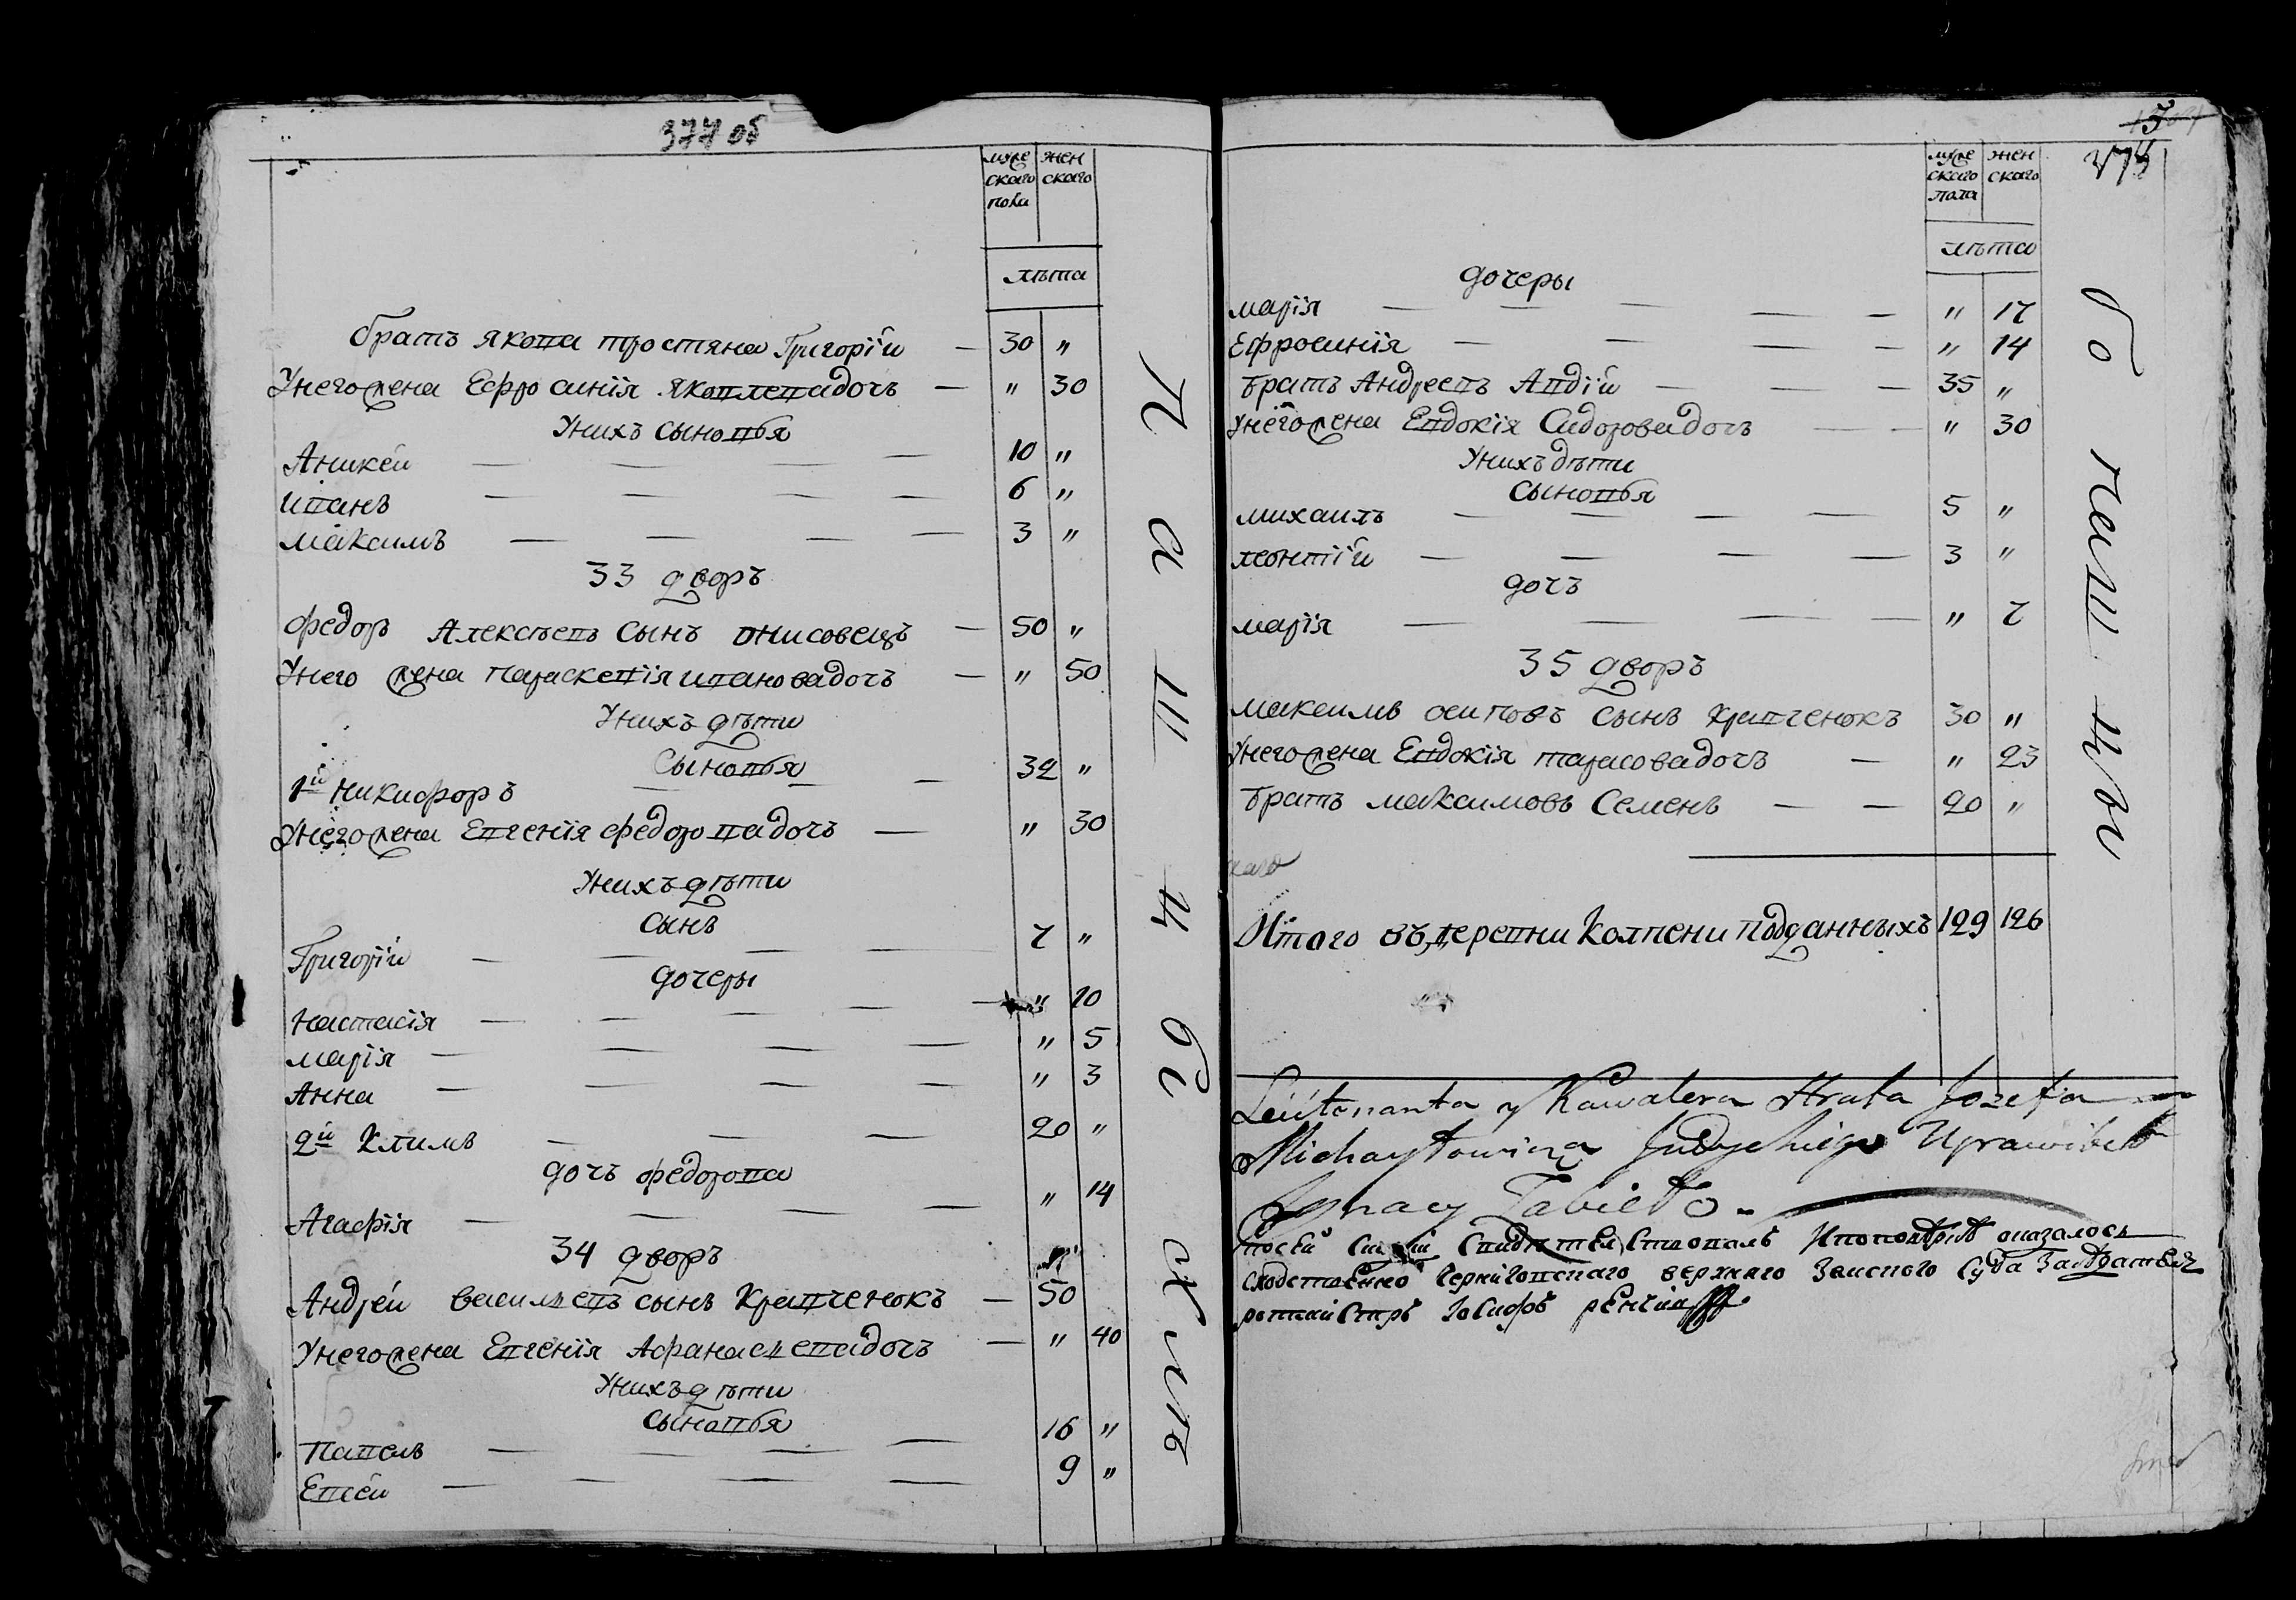 377 об
муже женского
ского
пола
лѣта
братъ якова тростяна Григорій — 30 "
Унего жена Ефросинія яковлевадочь — " 30
Унихъ сыновья
Аникей — 10 "
иванъ — 6 "
максимъ — 3 "
33 дворъ
федоръ Алексѣевъ сынъ онисовецъ — 50 "
Унего жена параскевія ивановадочь — " 50
Унихъ дѣти
Сыновья
1й никифоръ — 32 "
Унего жена Евгенія федоровадочь — " 30
Унихъ дѣти
сынъ
Григорій — 7 "
дочеры
настасія — " 10
марія — " 5
Анна — " 3
2й Климъ — 20 "
дочь федорова
Агафія — " 14
34 дворъ
Андрей васильевъ сынъ Кравченокъ — 50
Унего жена Евгенія Афанасьевадочь — " 40
Унихъ дѣти
сыновья
Павелъ — 16 "
Евсей — 9 "
муже женского
ского
пола
лѣта
дочеры
марія — " 17
Ефросинія — " 14
братъ Андреевъ Авдій — 35 "
Унего жена Евдокія Сидоровадочь — " 30
Унихъ дѣти
сыновья
михаилъ — 5 "
леонтій — 3 "
дочь
марія — " 7
35 дворъ
максимъ осиповъ сынъ Кравченокъ 30 "
Унего жена Евдокія тарасовадочь — " 23
братъ максимовъ Семенъ — 20 "
Итого въ деревни Колпени подданныхъ 129 126
Leütenanta y Kawalera Hrafa Jozefa
Michayłowicza Judyckiego Uprawitel
Ignacy
Свидѣтельствовалъ Ипоповѣркѣ оказалось
сходственно Черниговского верхнего Земского Суда Засѣдатель
ротмистръ Іосифъ